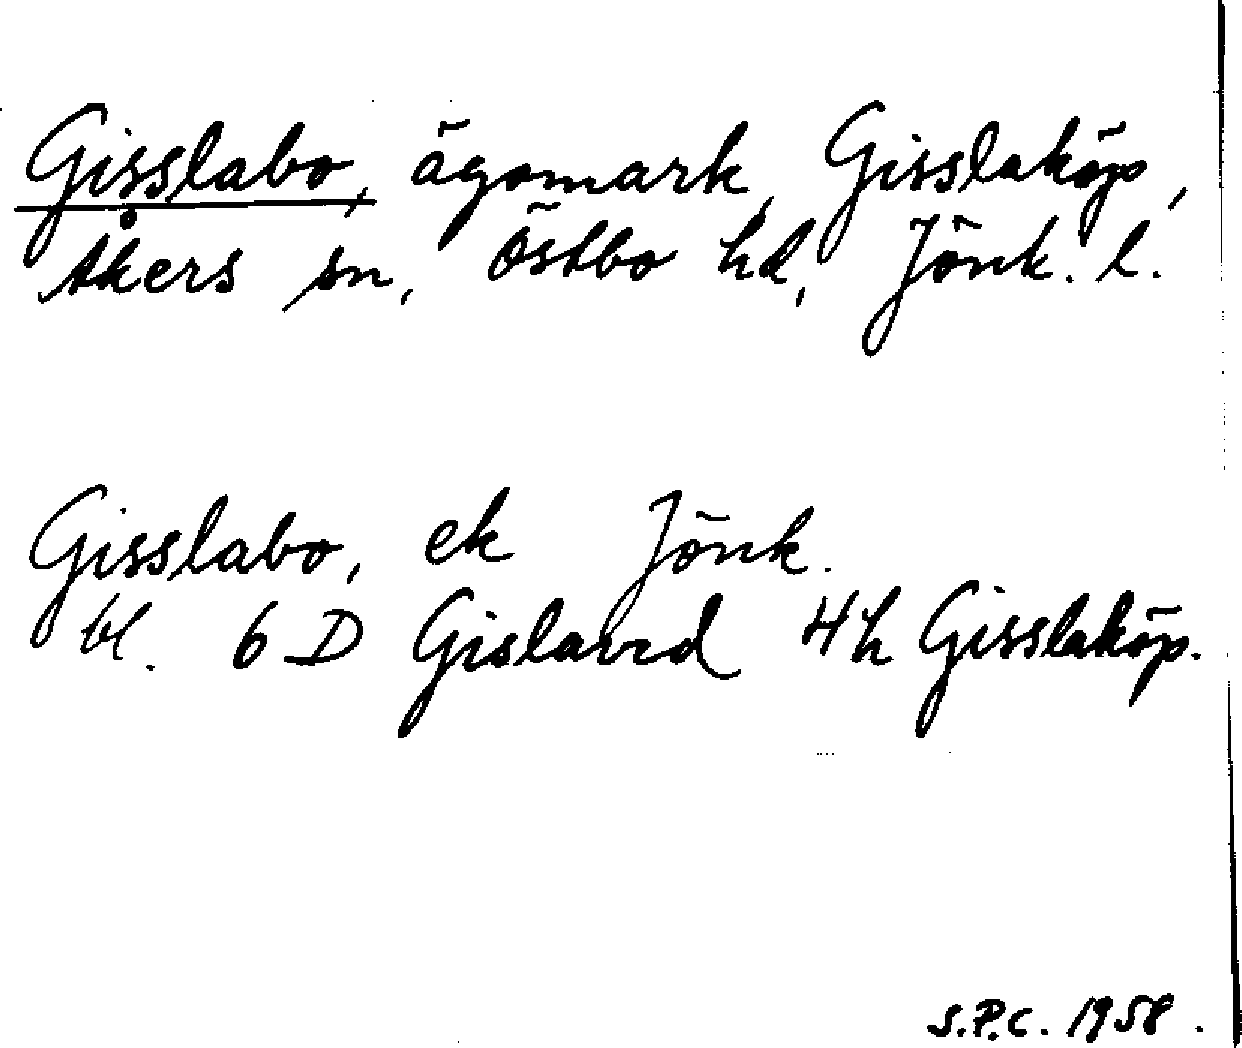 Gisslabo, ägomark, Gisslaköp,
Åkers sn, Östbo hd, Jönk. l.
Gisslabo, ek Jönk.
bl. 6 D Gislaved 4h Gisslaköp.
S.P.C. 1958.